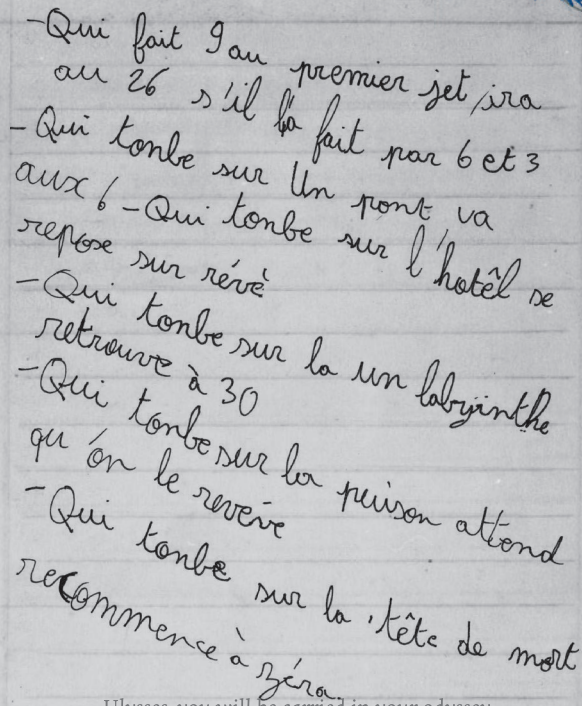 -Qui fait 9 au premier jet, ira
au 26 s'il l'a fait par 6 et 3
-Qui tonbe sur Un pont va
aux 6 -Qui tonbe sur l'hotêl se
repose sur révè
-Qui tonbe sur la un labyrinthe
retrouve à 30
-Qui tonbe sur la puison attend
qu'on le revéve
-Qui tonbe sur la tête de mort
recommence à zéra.
Ulysses, you will be carried in your odyssey